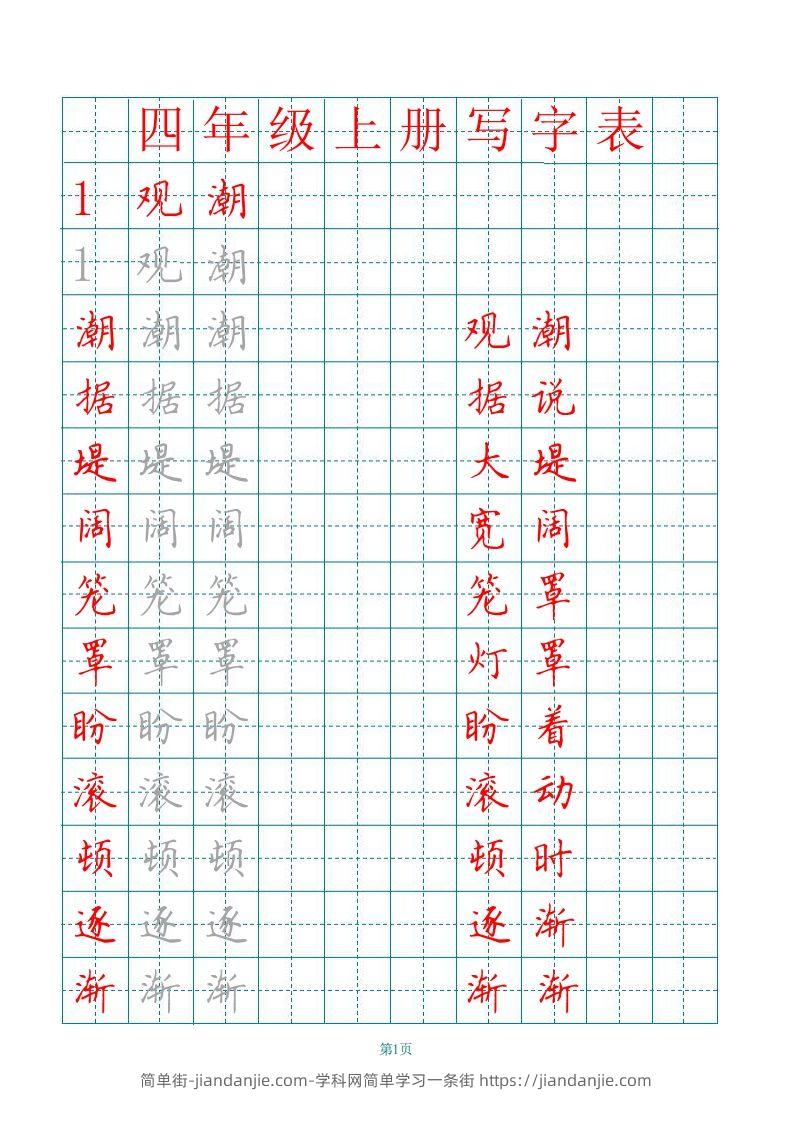 四年级上册写字表
1 观潮
1 观潮
潮 潮 潮 观潮
据 据 据 据说
堤 堤 堤 大堤
阔 阔 阔 宽阔
笼 笼 笼 笼罩
罩 罩 罩 灯罩
盼 盼 盼 盼着
滚 滚 滚 滚动
顿 顿 顿 顿时
逐 逐 逐 逐渐
渐 渐 渐 渐渐
第1页
简单街-jiandanjie.com-学科网简单学习一条街 https://jiandanjie.com